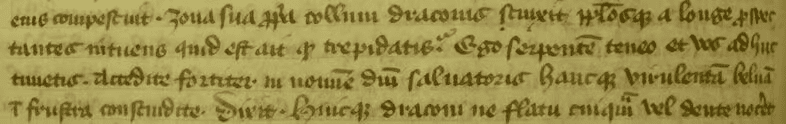 eius compescuit. Zona sua ꝓpa collum draconis stinxit pplosq; a longe ꝓspec
tantes intuens quid est ait qp trepidatis. Ego serpentē teneo et vos adhuc
timetis. Accedite fortiter in nomīe dnī saluatoris hancq; virulentā beluā
ī frustra conscindite. Dixit. huicq; draconi ne flatu cuiquā vel dente nocēt